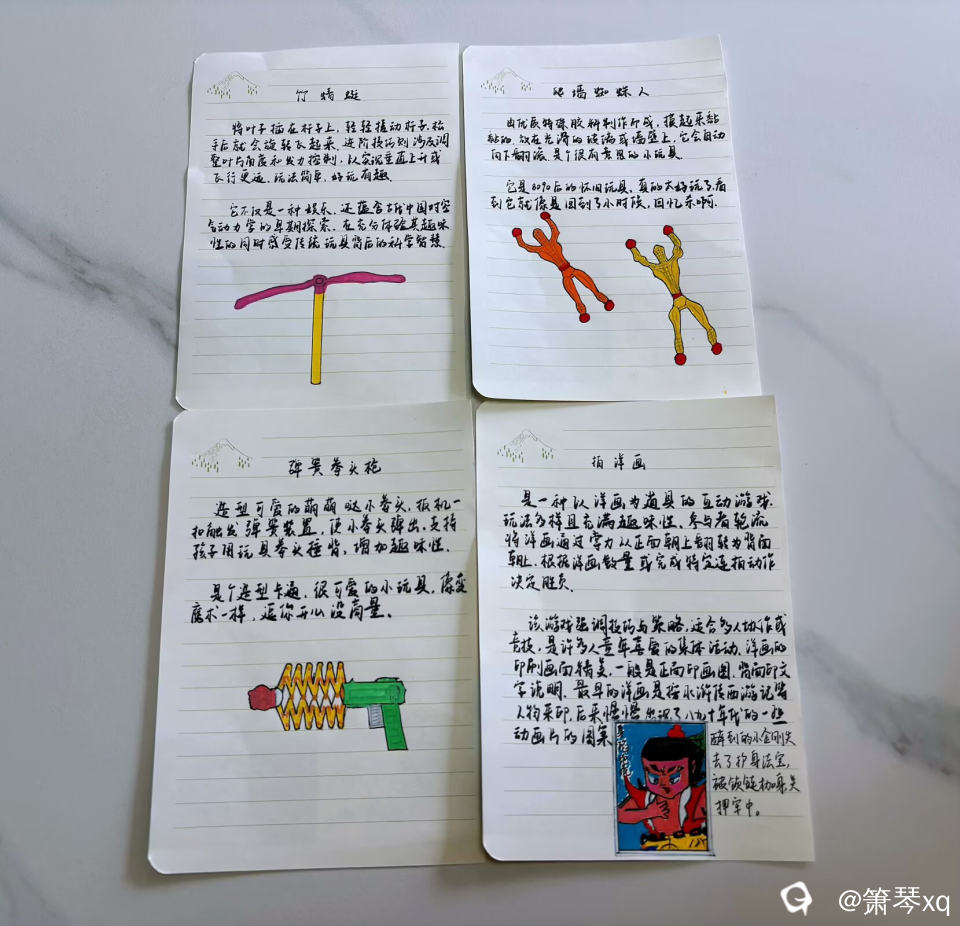 竹蜻蜓
将叶子插在杆子上，轻轻搓动杆子，松
手后就会旋转飞起来。进阶技巧则涉及调
整叶片角度和发力控制，以实现垂直上升或
飞行更远。玩法简单，好玩有趣。
它不仅是一种娱乐，还蕴含古代中国对空
气动力学的早期探索，在充分体验其趣味
性的同时感受传统玩具背后的科学智慧。
爬墙蜘蛛人
由优质特殊胶料制作而成，摸起来黏
黏的，放在光滑的玻璃或墙壁上，它会自动
向下翻滚，是个很有意思的小玩具。
它是8090后的怀旧玩具，真的太好玩了，看
到它就像是回到了小时候，回忆杀啊。
弹簧拳头枪
造型可爱的萌萌哒小拳头，扳机一
扣触发弹簧装置，使小拳头弹出，支持
孩子用玩具拳头捶背，增加趣味性。
是个造型卡通，很可爱的小玩具，像变
魔术一样，逗你开心没商量。
拍洋画
是一种以洋画为道具的互动游戏，
玩法多样且充满趣味性。参与者轮流
将洋画通过掌力从正面朝上翻转为背面
朝上，根据洋画数量或完成特定连拍动作
决定胜负。
该游戏强调技巧与策略，适合多人协作或
竞技，是许多人童年喜爱的集体活动。洋画的
印刷画面精美，一般是正面印画图，背面印文
字说明。最早的洋画是按水浒传西游记等
人物来印，后来慢慢出现了八九十年代的一些
动画片的图案
醉到的小金刚失
去了护身法宝，
被锁链加身关
押牢中。
@箫琴xq